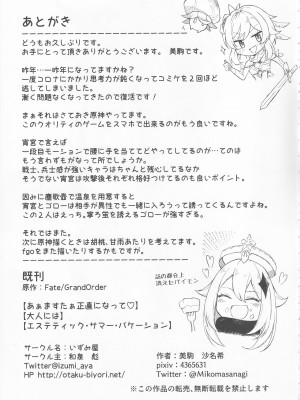 あとがき
どうもお久しぶりです。
お手にとって頂きありがとうございます。 美駒です。
昨年…一昨年になってますかね？
一度コロナにかかり思考力が鈍くなってコミケを２回ほど
逃してしまいました。
漸く問題なくなってきたので復活です！
まぁそれはさておき原神やってます。
このクオリティのゲームをスマホで出来るのがもう良いですね。
宵宮で言えば
一段目モーションで腰に手を当ててどやってしてるのが…てのは
もう言わずもがなって所でしょうか。
戦士、兵士感が強いキャラはちゃんと残心してるなか
そうでない宵宮は攻撃後それぞれ格好つけてるのも良いポイント。
因みに塵歌壺で温泉を用意すると
宵宮とゴローは相手が異性でも一緒に入ろうって誘ってくるんですよね。
この２人はえっち。寧ろ蛍を誘えるゴローが強すぎる。
それではまた。
次に原神描くときは胡桃、甘雨あたりを考えてます。
fgoをまた描いたりするかもですが。
既刊
原作：Fate/GrandOrder
【あぁますたぁ正直になって♡】
【大人には】
【エステティック・サマー・バケーション】
話の都合上
消えたパイモン
サークル名：いずみ屋
サークル主：和泉 彪
Twitter@izumi_aya
HP http://otaku-biyori.net/
作者：美駒 沙名希
pixiv 4365631
Twitter：@Mikomasanagi
※この作品の転売、無断転載を禁止します